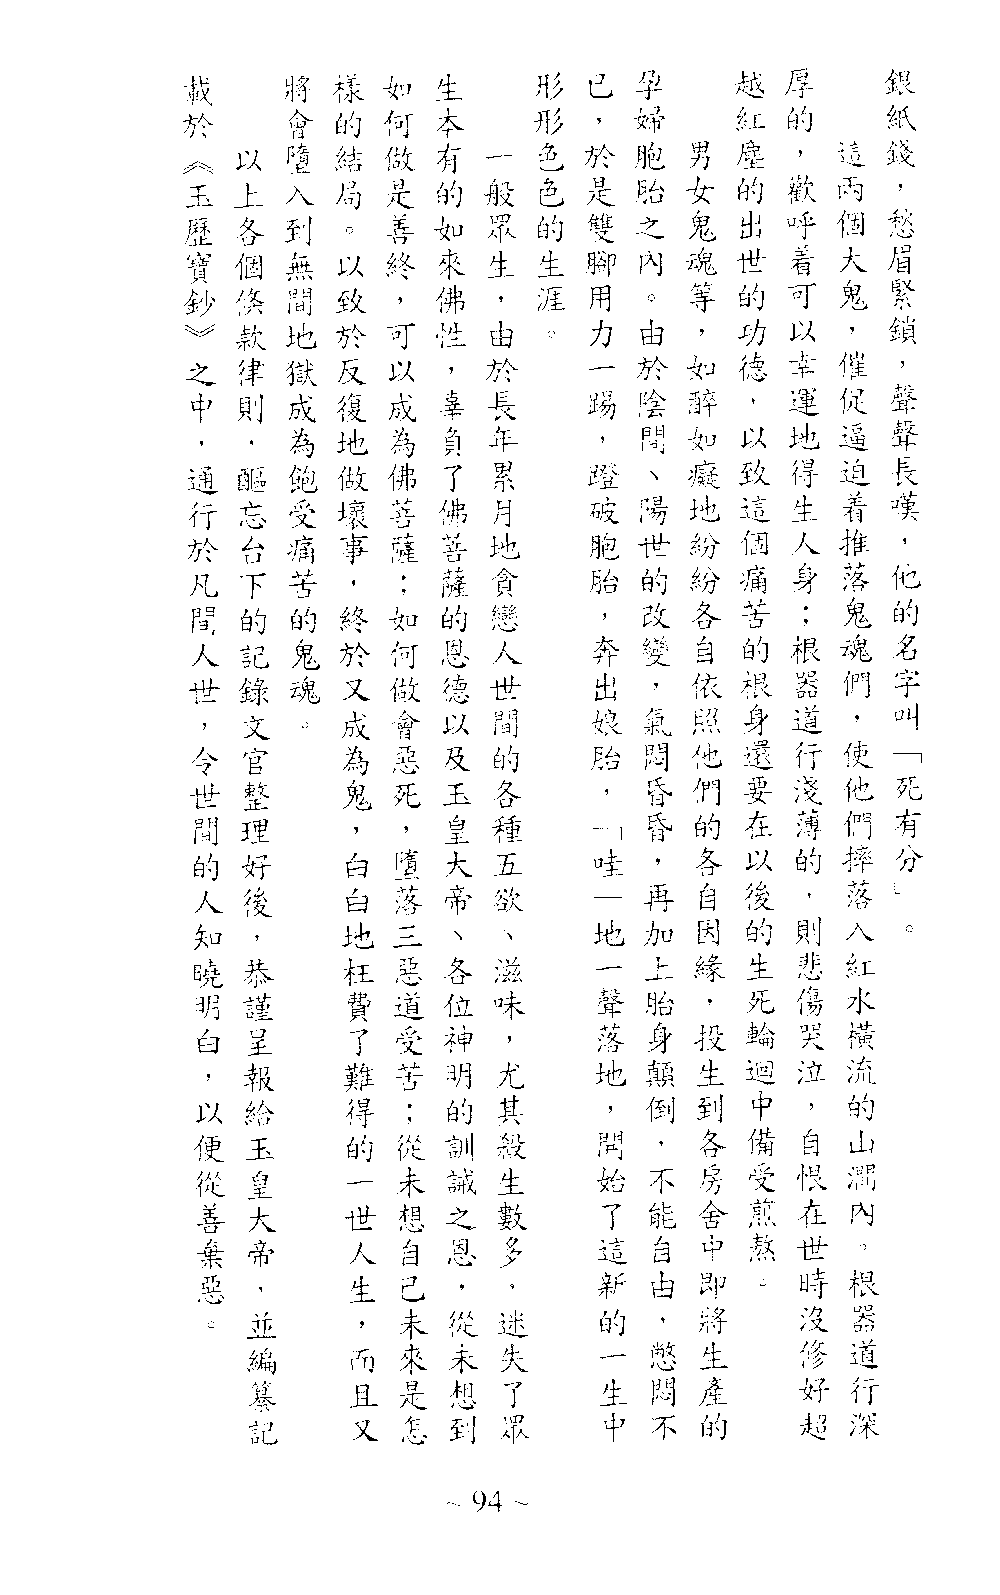 銀紙錢，愁眉緊鎖，聲聲長嘆，他的名字叫「死有分」。
這兩個大鬼，催促逼迫着推落鬼魂們，使他們摔落入紅水橫流的山澗內。根器道行深
厚的，歡呼着可以幸運地得生人身；根器道行淺薄的，則悲傷哭泣，自恨在世時沒修好超
越紅塵的出世的功德，以致這個痛苦的根身還要在以後的生死輪迴中備受煎熬。
男女鬼魂等，如醉如癡地紛紛各自依照他們的各自因緣，投生到各房舍中即將生產的
孕婦胞胎之內。由於陰間、陽世的改變，氣悶昏昏，再加上胎身顛倒，不能自由，憋悶不
已，於是雙腳用力一踢，蹬破胞胎，奔出娘胎，「哇—地一聲落地，開始了這新的一生中
形形色色的生涯。
一般眾生，由於長年累月地貪戀人世間的各種五欲、滋味，尤其殺生數多，迷失了眾
生本有的如來佛性，辜負了佛菩薩的恩德以及玉皇大帝、各位神明的訓誡之恩，從未想到
如何做是善終，可以成為佛菩薩；如何做會惡死，墮落三惡道受苦；從未想自己未來是怎
樣的結局。以致於反復地做壞事，終於又成為鬼，白白地枉費了難得的一世人生，而且又
將會墮入到無間地獄成為飽受痛苦的鬼魂。
以上各個條款律則，醧忘台下的記錄文官整理好後，恭謹呈報給玉皇大帝，並編纂記
載於《玉歷寶鈔》之中，通行於凡間人世，令世間的人知曉明白，以便從善棄惡。
~ 94 ~